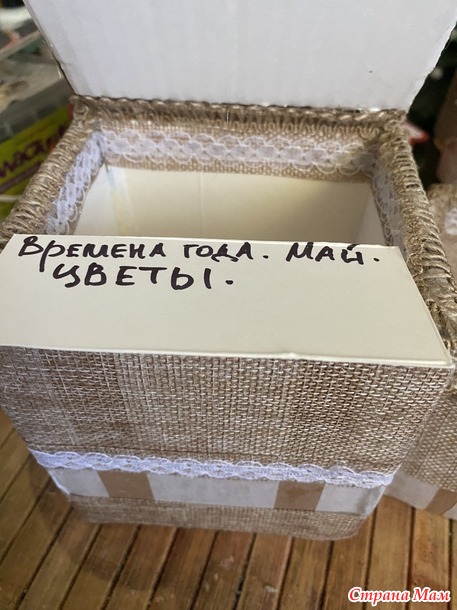 Времена года. Май.
цветы.
Страна Мам